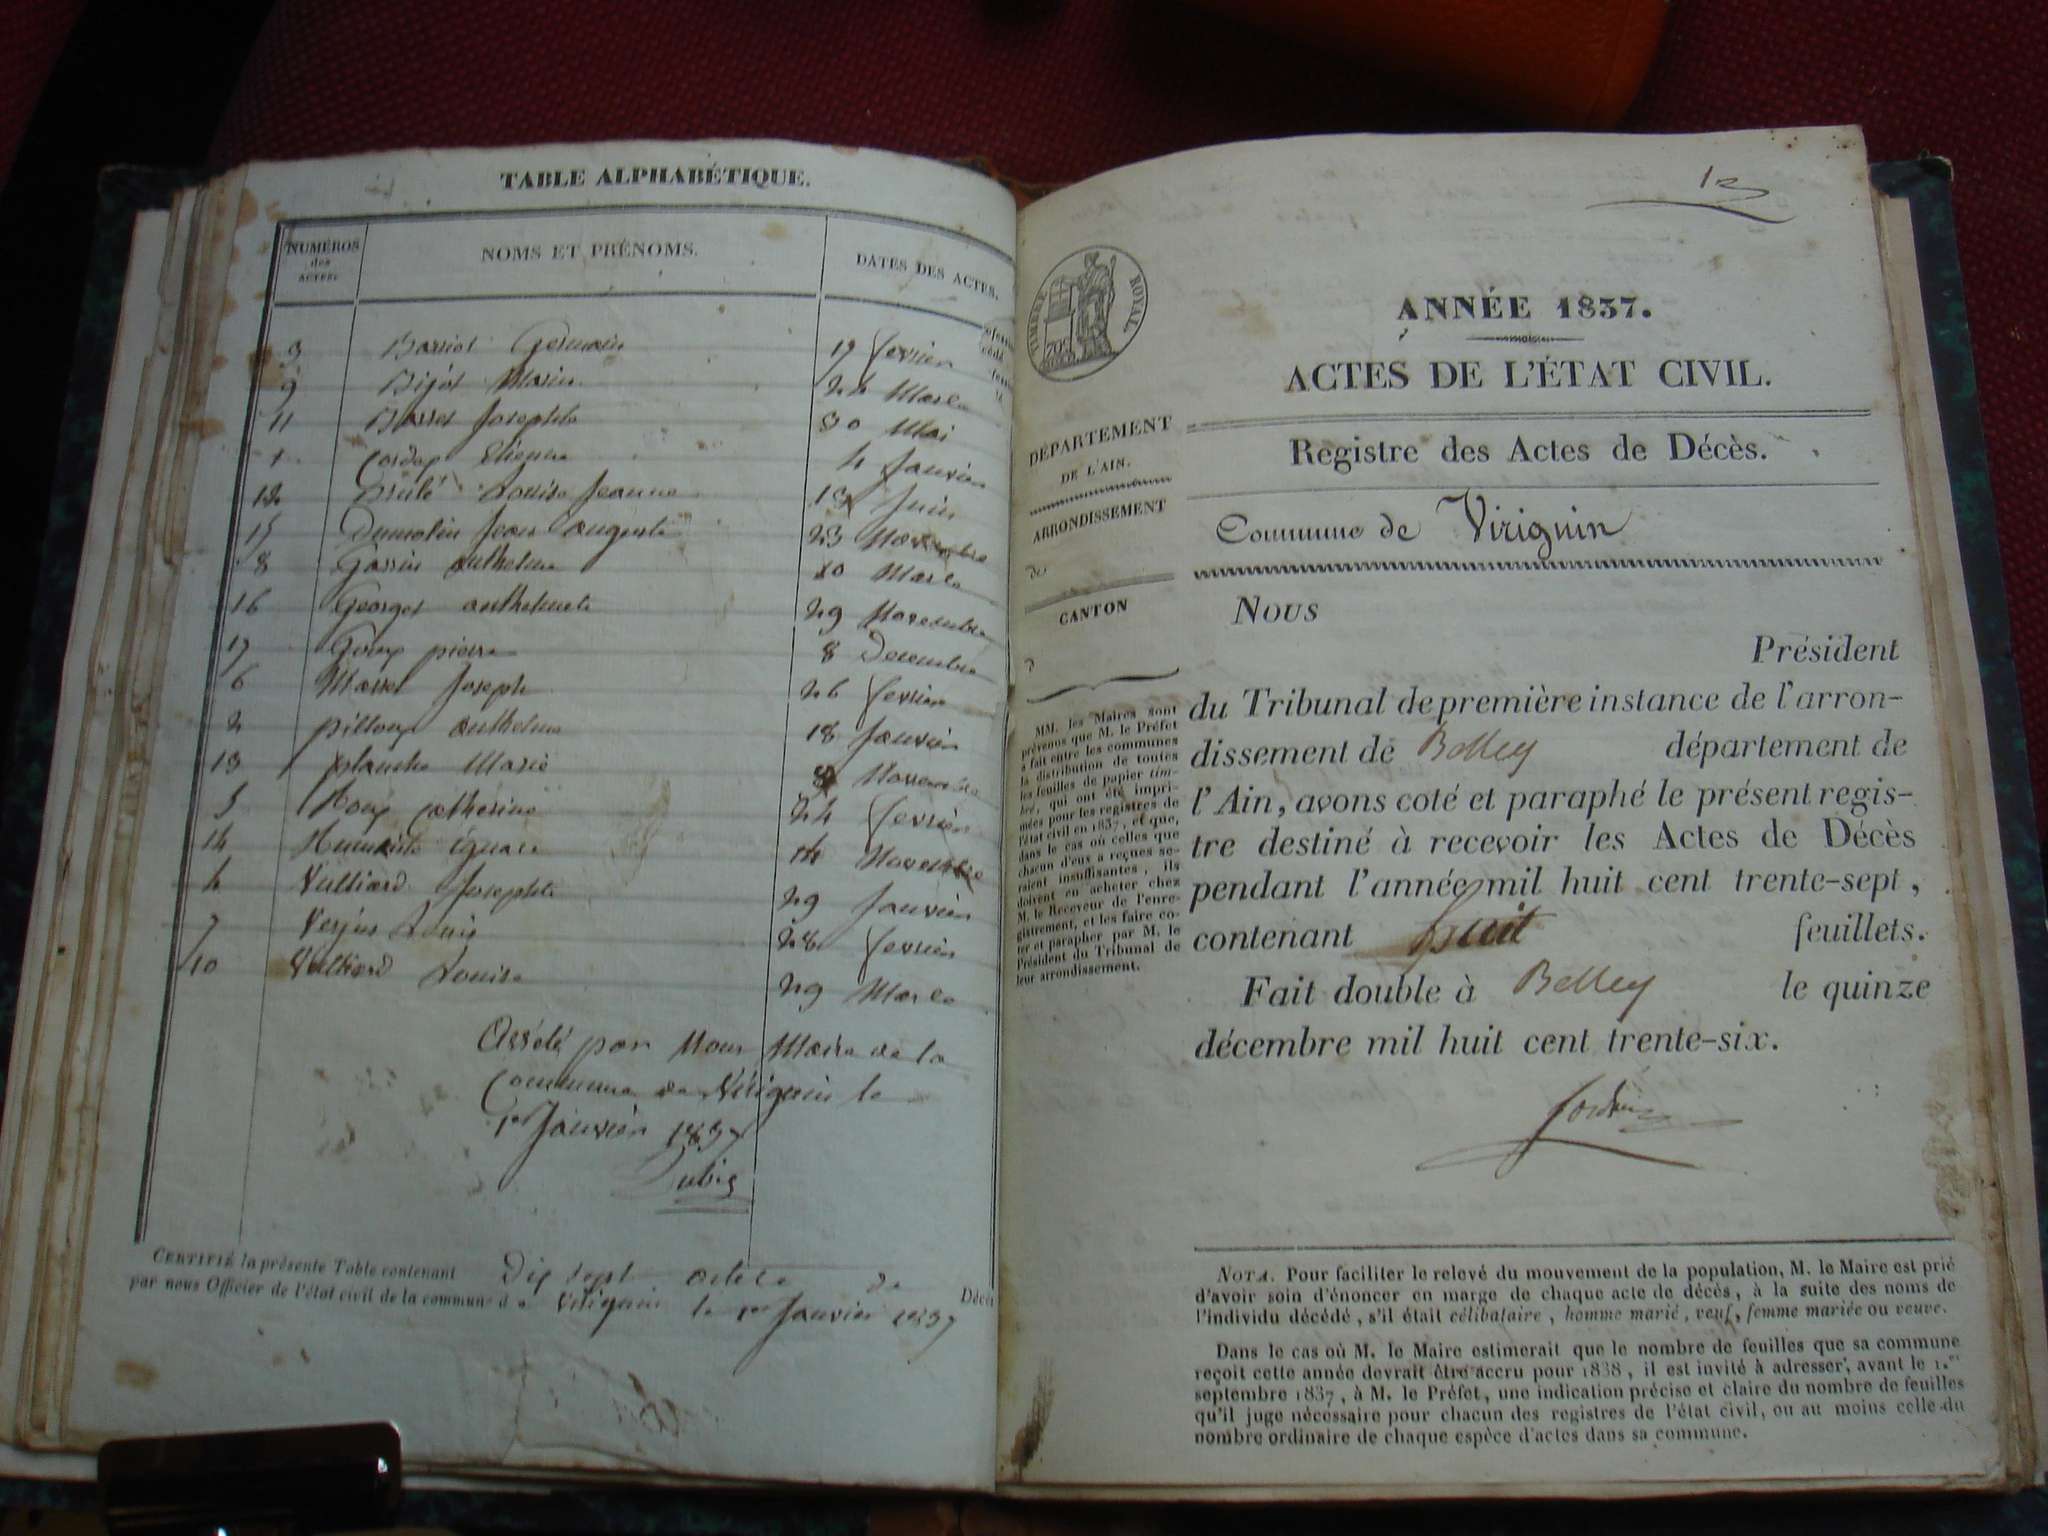 TABLE ALPHABÉTIQUE.
NUMÉROS des ACTES.
NOMS ET PRÉNOMS.
DATES DES ACTES.
3 Germain 19 fevrier
9 Marie 24 Mars
11 Josephte 30 Mai
1 Etienne 4 Janvier
12 Louise Jeanne 13 Juin
15 Dumolin Jean auguste 23 Novembre
8 anthelme 20 Mars
16 Georges anthelmete 29 Novembre
17 Goux pierre 8 Decembre
6 Masset Joseph 26 fevrier
2 pilloux anthelme 18 Janvier
13 planche Marie 8 Novembre
5 Roux catherine 24 fevrier
14 ignace 14 Novembre
4 Vulliard Josephte 29 Janvier
7 Verjus Louis 28 fevrier
10 Vulliard Louise 29 Mars
Arrêté par Nous Maire de la
Commune de Virignin le
1er Janvier 1837
Dubis
CERTIFIÉ la présente Table contenant Dix sept actes de Décès
par nous Officier de l'état civil de la commune de Virignin le 1er Janvier 1837
13
TIMBRE ROYAL.
ANNÉE 1837.
ACTES DE L'ÉTAT CIVIL.
DÉPARTEMENT
DE L'AIN.
ARRONDISSEMENT
de
CANTON
d
MM. les Maires sont
prévenus que M. le Préfet
a fait entre les communes
la distribution de toutes
les feuilles de papier tim-
bré, qui ont été impri-
mées pour les registres de
l'état civil en 1837, et que,
dans le cas où celles que
chacun d'eux a reçues se-
raient insuffisantes, ils
doivent en acheter chez
M. le Receveur de l'enre-
gistrement, et les faire co-
ter et parapher par M. le
Président du Tribunal de
leur arrondissement.
Registre des Actes de Décès.
Commune de Virignin
NOUS
Président
du Tribunal de première instance de l'arron-
dissement de Belley département de
l'Ain, avons coté et paraphé le présent regis-
tre destiné à recevoir les Actes de Décès
pendant l'année mil huit cent trente-sept,
contenant huit feuillets.
Fait double à Belley le quinze
décembre mil huit cent trente-six.
NOTA. Pour faciliter le relevé du mouvement de la population, M. le Maire est prié
d'avoir soin d'énoncer en marge de chaque acte de décès, à la suite des noms de
l'individu décédé, s'il était célibataire, homme marié, veuf, femme mariée ou veuve.
Dans le cas où M. le Maire estimerait que le nombre de feuilles que sa commune
reçoit cette année devrait être accru pour 1838, il est invité à adresser, avant le 1.er
septembre 1837, à M. le Préfet, une indication précise et claire du nombre de feuilles
qu'il juge nécessaire pour chacun des registres de l'état civil, ou au moins celle du
nombre ordinaire de chaque espèce d'actes dans sa commune.